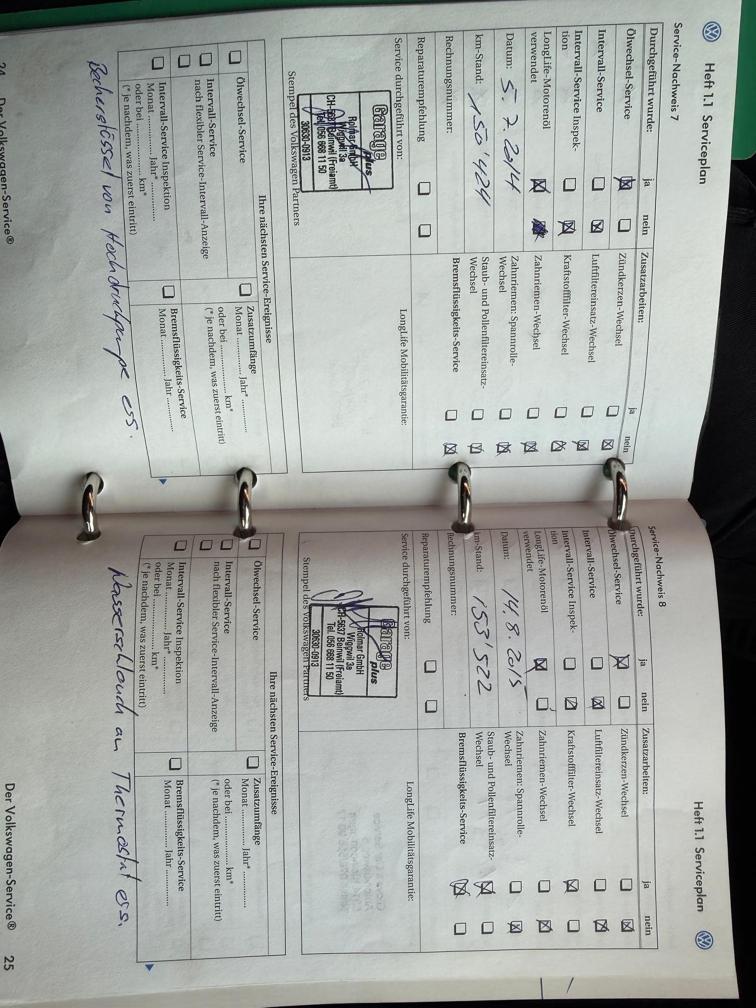 Heft 1.1 Serviceplan
Service-Nachweis 7
Durchgeführt wurde: ja nein
Ölwechsel-Service
Intervall-Service
Intervall-Service Inspek-
tion
LongLife-Motorenöl
verwendet
Datum: 5. 7. 2014
km-Stand: 150'424
Rechnungsnummer:
Zusatzarbeiten: ja nein
Zündkerzen-Wechsel
Luftfiltereinsatz-Wechsel
Kraftstofffilter-Wechsel
Zahnriemen-Wechsel
Zahnriemen: Spannrolle-
Wechsel
Staub- und Pollenfiltereinsatz-
Wechsel
Bremsflüssigkeits-Service
Reparaturempfehlung
Service durchgeführt von:
Garage
plus
Rolmar GmbH
Wigwil 3a
CH-5637 Beinwil (Freiamt)
Tel. 056 668 11 50
30630-0913
Stempel des Volkswagen Partners
LongLife Mobilitätsgarantie:
Ihre nächsten Service-Ereignisse
Ölwechsel-Service
Intervall-Service
nach flexibler Service-Intervall-Anzeige
Intervall-Service Inspektion
Monat ............ Jahr* ............
oder bei ............ km*
(* je nachdem, was zuerst eintritt)
Zusatzumfänge
Monat ............ Jahr* ............
oder bei ............ km*
(* je nachdem, was zuerst eintritt)
Bremsflüssigkeits-Service
Monat ............ Jahr ............
von Hochdruckpumpe ers.
24 Der Volkswagen-Service®
Heft 1.1 Serviceplan
Service-Nachweis 8
Durchgeführt wurde: ja nein
Ölwechsel-Service
Intervall-Service
Intervall-Service Inspek-
tion
LongLife-Motorenöl
verwendet
Datum: 14. 8. 2015
km-Stand: 153'522
Rechnungsnummer:
Zusatzarbeiten: ja nein
Zündkerzen-Wechsel
Luftfiltereinsatz-Wechsel
Kraftstofffilter-Wechsel
Zahnriemen-Wechsel
Zahnriemen: Spannrolle-
Wechsel
Staub- und Pollenfiltereinsatz-
Wechsel
Bremsflüssigkeits-Service
Reparaturempfehlung
Service durchgeführt von:
Garage
plus
Rolmar GmbH
Wigwil 3a
CH-5637 Beinwil (Freiamt)
Tel. 056 668 11 50
30630-0913
Stempel des Volkswagen Partners
LongLife Mobilitätsgarantie:
Ihre nächsten Service-Ereignisse
Ölwechsel-Service
Intervall-Service
nach flexibler Service-Intervall-Anzeige
Intervall-Service Inspektion
Monat ............ Jahr* ............
oder bei ............ km*
(* je nachdem, was zuerst eintritt)
Zusatzumfänge
Monat ............ Jahr* ............
oder bei ............ km*
(* je nachdem, was zuerst eintritt)
Bremsflüssigkeits-Service
Monat ............ Jahr ............
Wasserschlauch am Thermostat ers.
Der Volkswagen-Service® 25